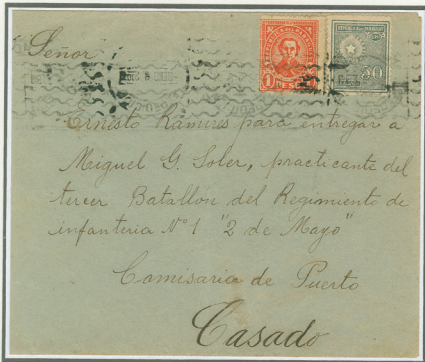 Señor
Ernesto Ramires para entregar a
Miguel G. Soler, practicante del
tercer Batallón del Regimiento de
infanteria Nº 1 "2 de Mayo"
Comisaria de Puerto
Casado
1
50